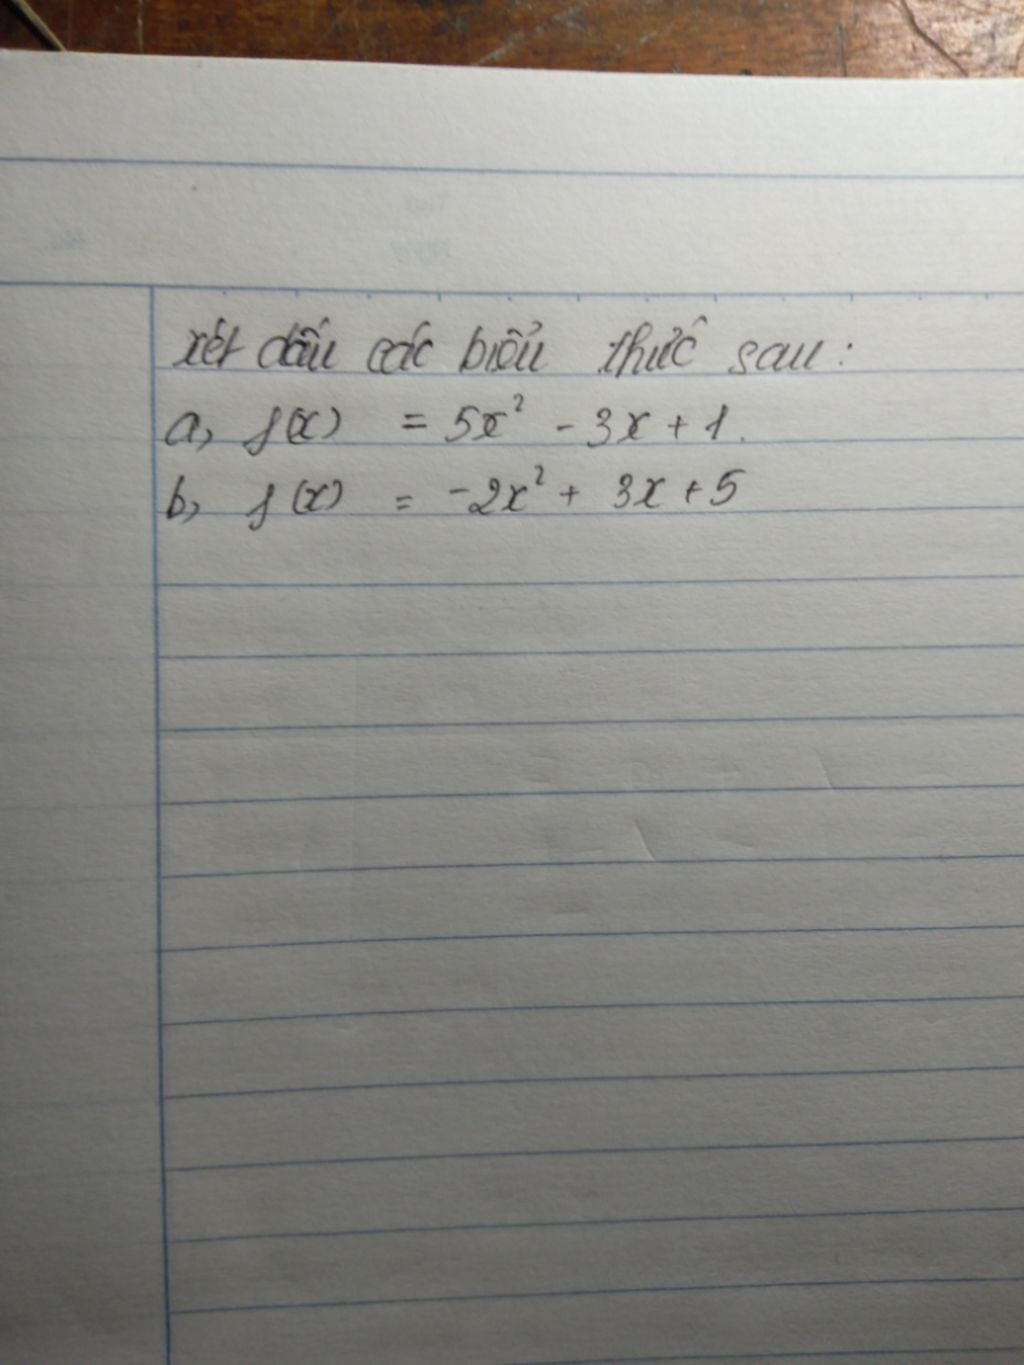 xét dấu các biểu thức sau:
a, f(x) = 5x² - 3x + 1.
b, f(x) = -2x² + 3x + 5